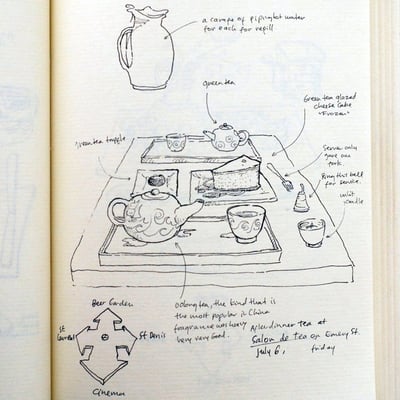 a carafe of piping hot water
for each for refill
green tea
Green tea glazed
cheese cake
"Frozen"
green tea truffle
Server only
gave one
fork
Ring this bell
for service.
unlit
candle
Beer Garden
St Laurent
St Denis
Cinema
oolong tea, the kind that is
the most popular in China
fragrance was very
very very good.
After dinner Tea at
Salon de Tea on Emery St.
July 6, friday